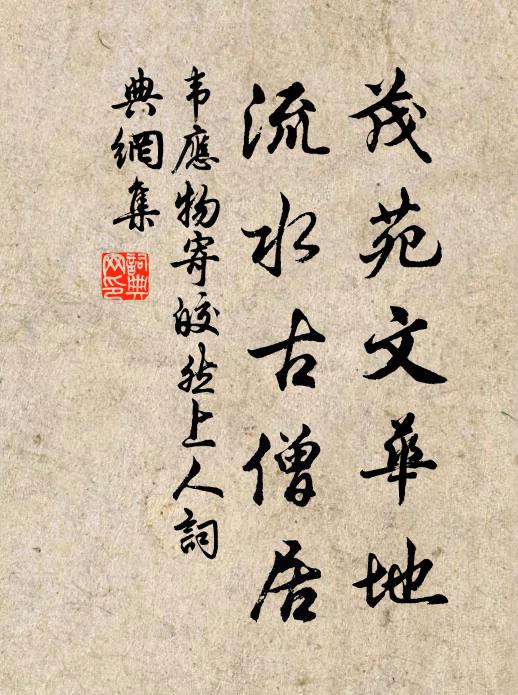 茂苑文華地
流水古僧居
韦應物寄皎然上人詞
典網集
詞典网印